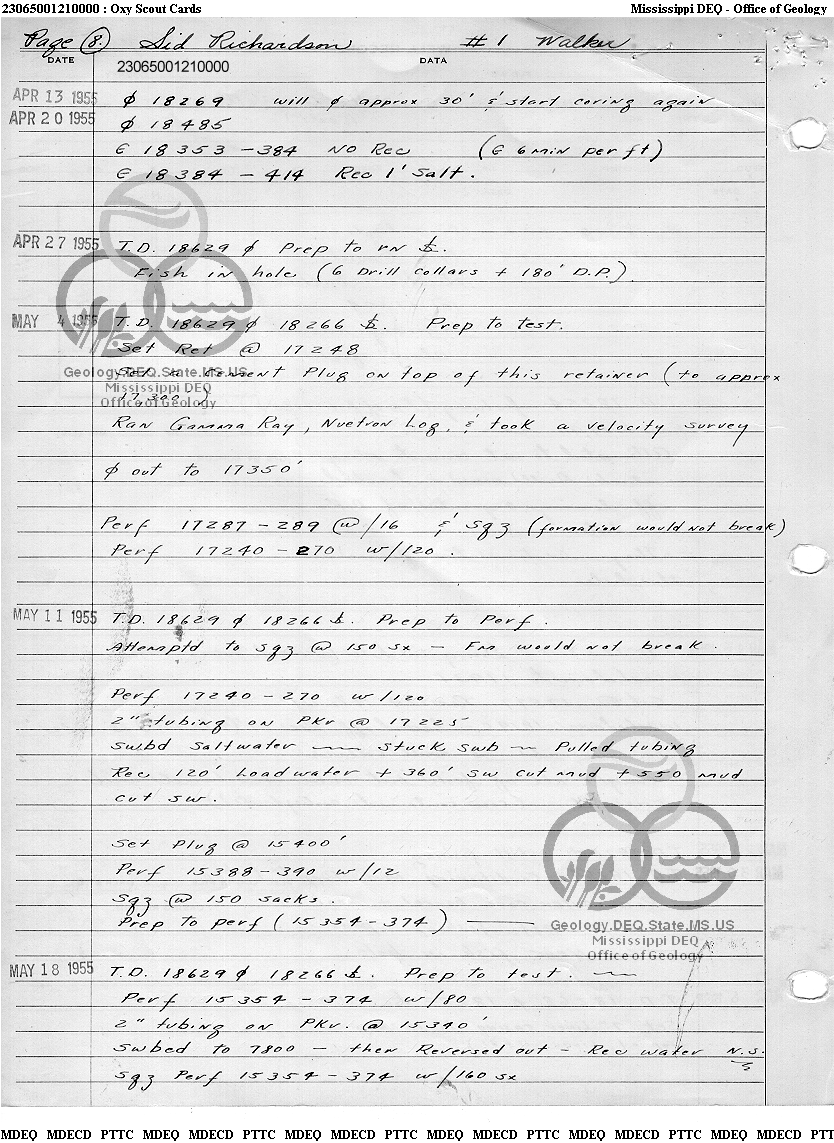 23065001210000 : Oxy Scout Cards Mississippi DEQ - Office of Geology
Page 8. Sid Richardson #1 Walker
DATE 23065001210000 DATA
APR 13 1955 ϕ 18269 will ϕ approx 30' & start coring again
APR 20 1955 ϕ 18485
C 18353-384 NO Rec (C 6 min per ft)
C 18384-414 Rec 1' Salt.
APR 27 1955 T.D. 18629 ϕ Prep to rn
Fish in hole (6 Drill collars + 180' D.P.)
MAY 4 1955 T.D. 18629 ϕ 18266 Prep to test.
Set Ret @ 17248
Cement Plug on top of this retainer (to approx
17,300')
Ran Gamma Ray, Nuetron Log, & took a velocity survey
ϕ out to 17350'
Perf 17287-289 @/16 & Sqz (formation would not break)
Perf 17240-270 w/120.
MAY 11 1955 T.D. 18629 ϕ 18266 Prep to Perf.
Attemptd to Sqz @ 150 sx - Fm would not break.
Perf 17240-270 w/120
2" tubing on PKr @ 17225
Swbd Saltwater — Stuck swb — Pulled tubing
Rec 120' Loadwater + 360' SW cut mud + 550 mud
cut SW.
Set Plug @ 15400'
Perf 15388-390 w/12
Sqz @ 150 sacks.
Prep to perf (15354-374) —
MAY 18 1955 T.D. 18629 ϕ 18266 Prep to test. —
Perf 15354-374 w/80
2" tubing on PKr. @ 15340'
Swbed to 7800 - then Reversed out - Rec water N.S.
Sqz Perf 15354-374 w/160 sx
Geology.DEQ.State.MS.US
Mississippi DEQ
Office of Geology
Geology.DEQ.State.MS.US
Mississippi DEQ
Office of Geology
MDEQ MDECD PTTC MDEQ MDECD PTTC MDEQ MDECD PTTC MDEQ MDECD PTTC MDEQ MDECD PTTC MDEQ MDECD PTT